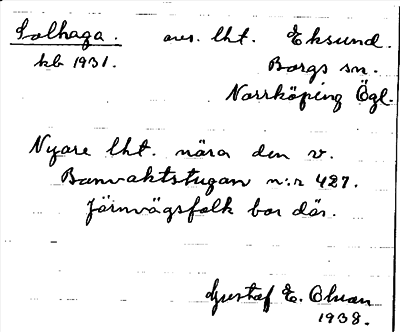 Solhaga. avs. lht. Eksund.
kb 1931. Borgs sn.
Norrköping Ögl.
Nyare lht. nära den v.
Banvaktstugan n:r 427.
Järnvägsfolk bor där.
Gustaf E. Olsson
1938.